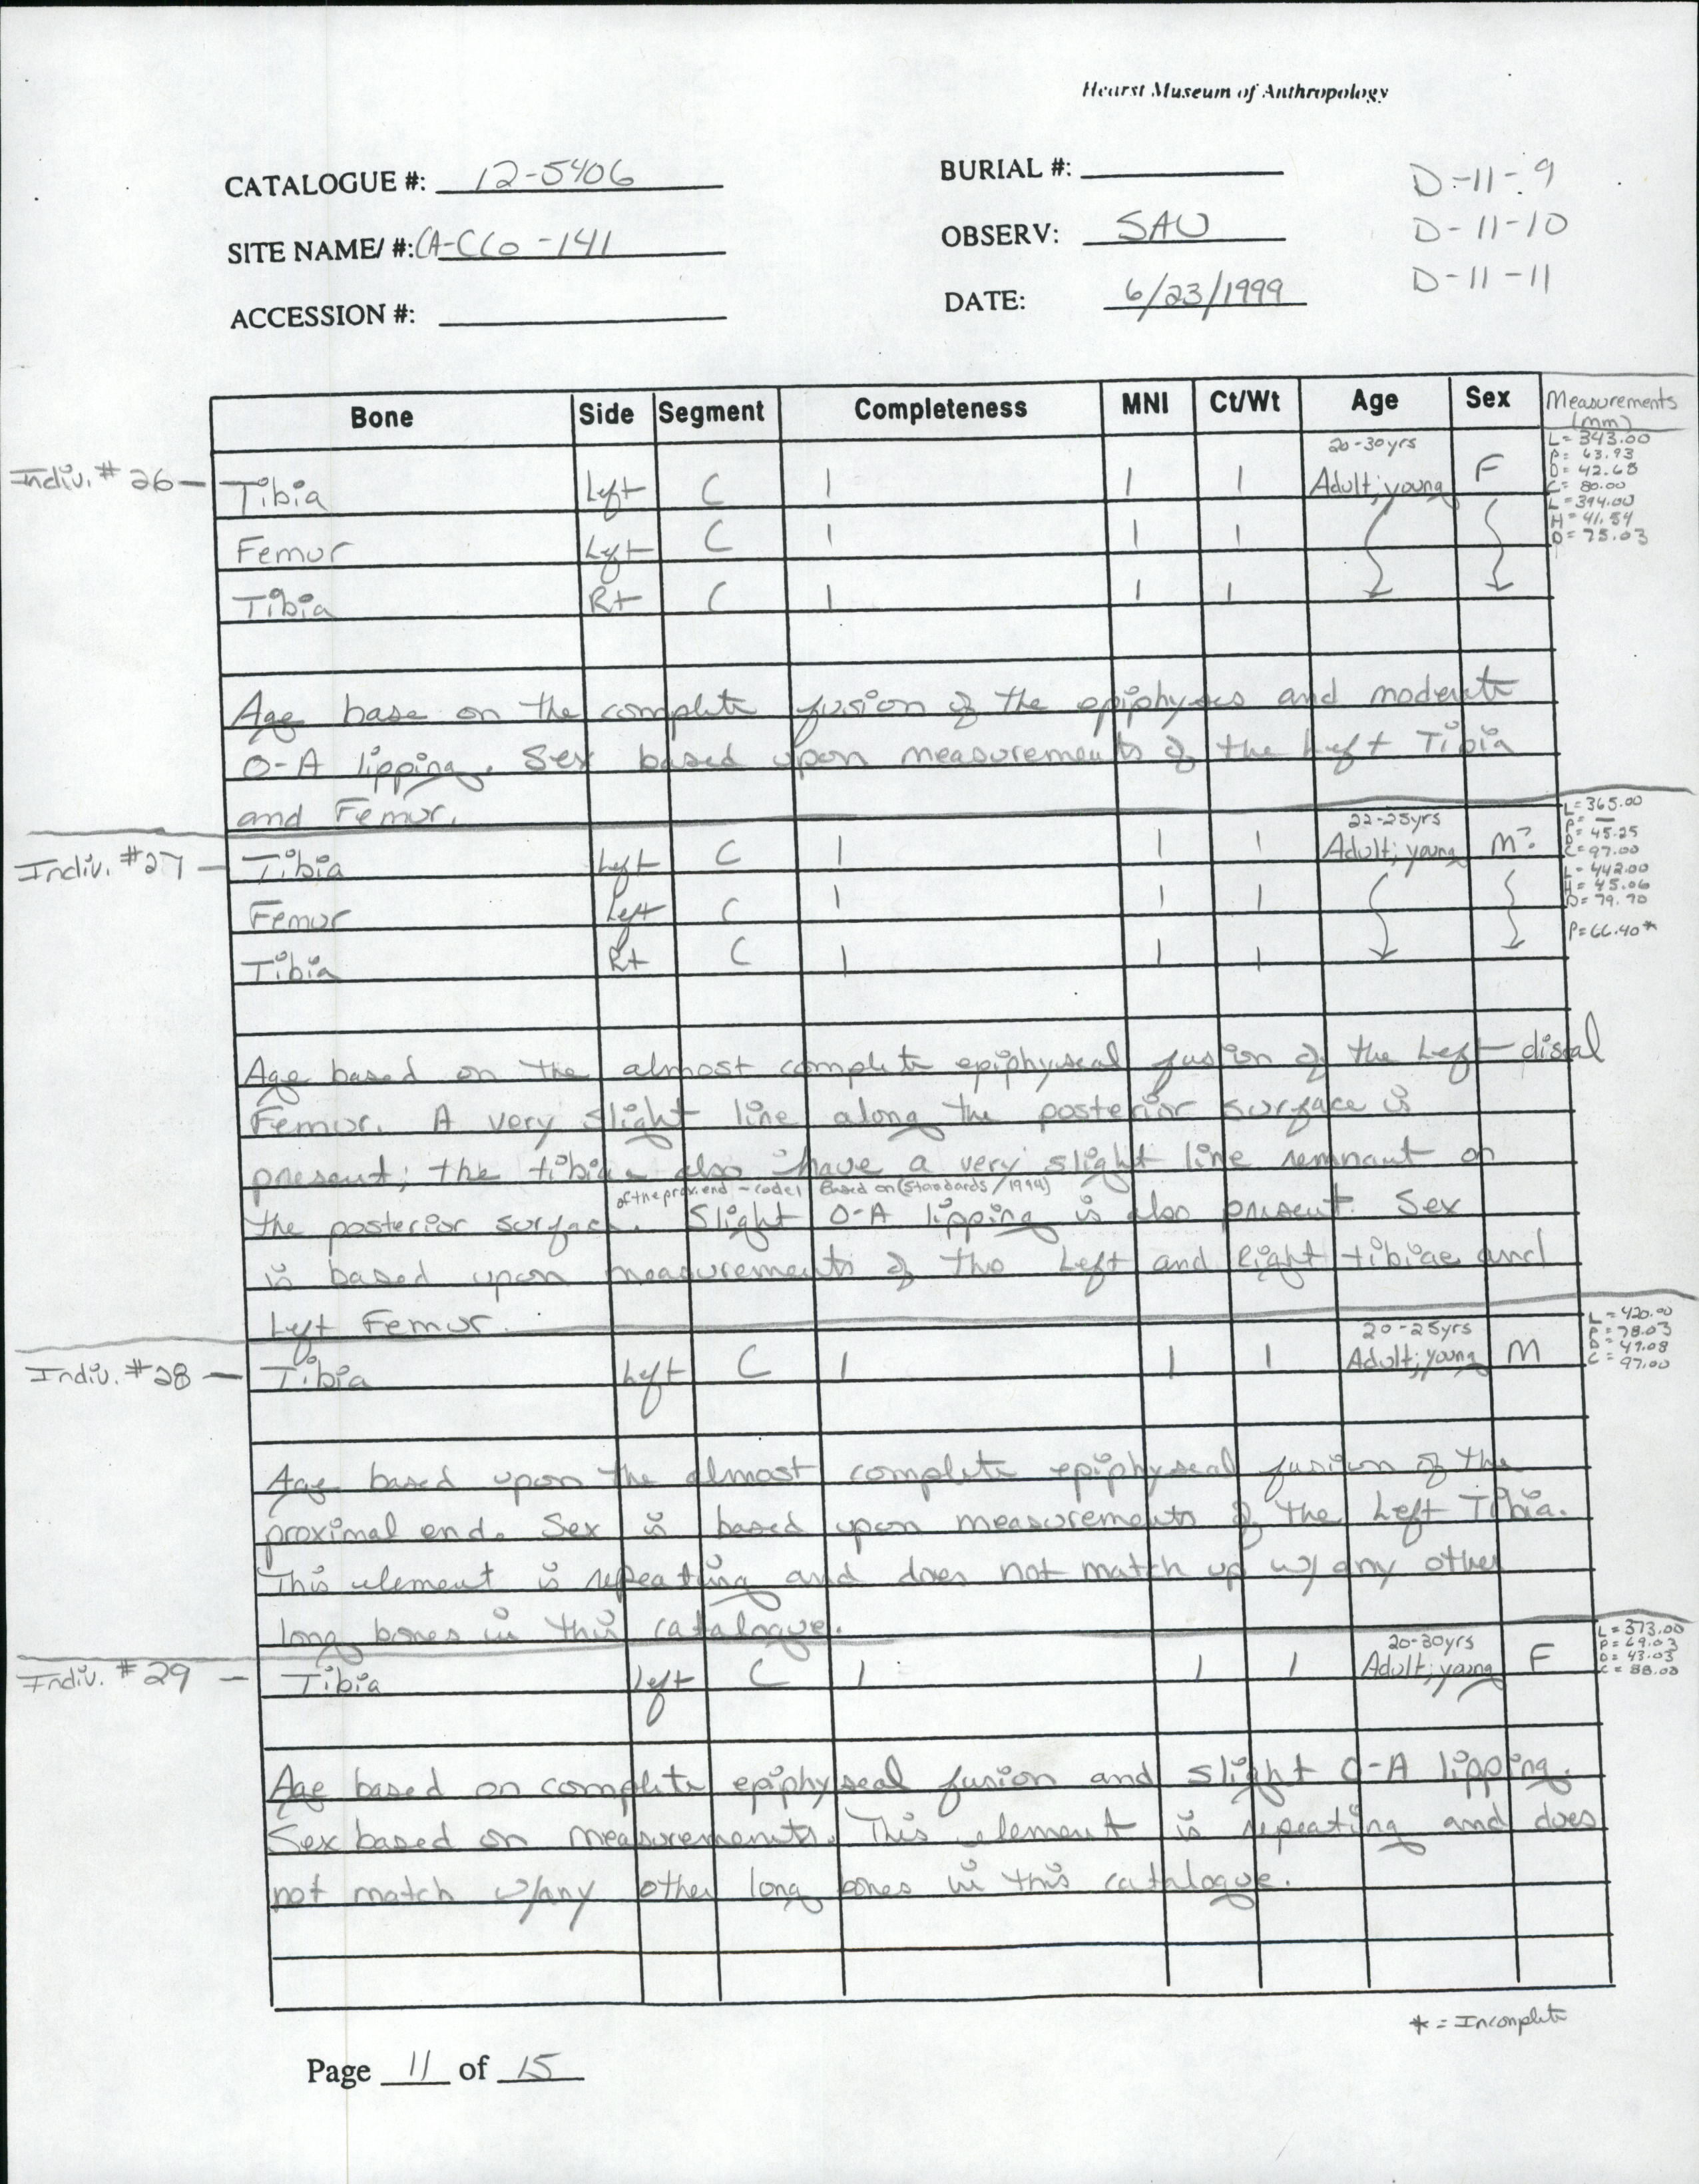 Hearst Museum of Anthropology
CATALOGUE #: 12-5406
BURIAL #:
D-11-9
SITE NAME/ #: CA-CCo-141
OBSERV: SAU
D-11-10
ACCESSION #:
DATE: 6/23/1999
D-11-11
Bone Side Segment Completeness MNI Ct/Wt Age Sex Measurements (mm)
Indiv. #26 — Tibia Left C 1 1 1 20-30yrs Adult; young F
L= 343.00
P= 63.93
D= 42.68
C= 80.00
Femur Left C 1 1 1
L=394.00
H= 41.54
D= 75.03
Tibia Rt C 1 1 1
Age base on the complete fusion of the epiphyses and moderate
O-A lipping. Sex based upon measurements of the Left Tibia
and Femur.
Indiv. #27 — Tibia Left C 1 1 1 22-25yrs Adult; young M?
L= 365.00
P= —
D= 45.25
C= 97.00
Femur Left C 1 1 1
L= 442.00
H= 45.06
D= 79.70
Tibia Rt C 1 1 1
P=66.40*
Age based on the almost complete epiphyseal fusion of the Left distal
Femur. A very slight line along the posterior surface is
present; the tibiae also have a very slight line remnant on
of the prox. end - code 1 Based on (Standards/1994)
the posterior surface. Slight O-A lipping is also present. Sex
is based upon measurements of the Left and Right tibiae and
Left Femur.
Indiv. #28 — Tibia Left C 1 1 1 20-25yrs Adult; young M
L= 420.00
P= 78.03
D= 49.08
C= 97.00
Age based upon the almost complete epiphyseal fusion of the
proximal end. Sex is based upon measurements of the Left Tibia.
This element is repeating and does not match up w/ any other
long bones in this catalogue.
Indiv. #29 — Tibia Left C 1 1 1 20-30yrs Adult; young F
L= 373.00
P= 69.03
D= 43.03
C= 88.00
Age based on complete epiphyseal fusion and slight O-A lipping.
Sex based on measurements. This element is repeating and does
not match w/any other long bones in this catalogue.
* = Incomplete
Page 11 of 15